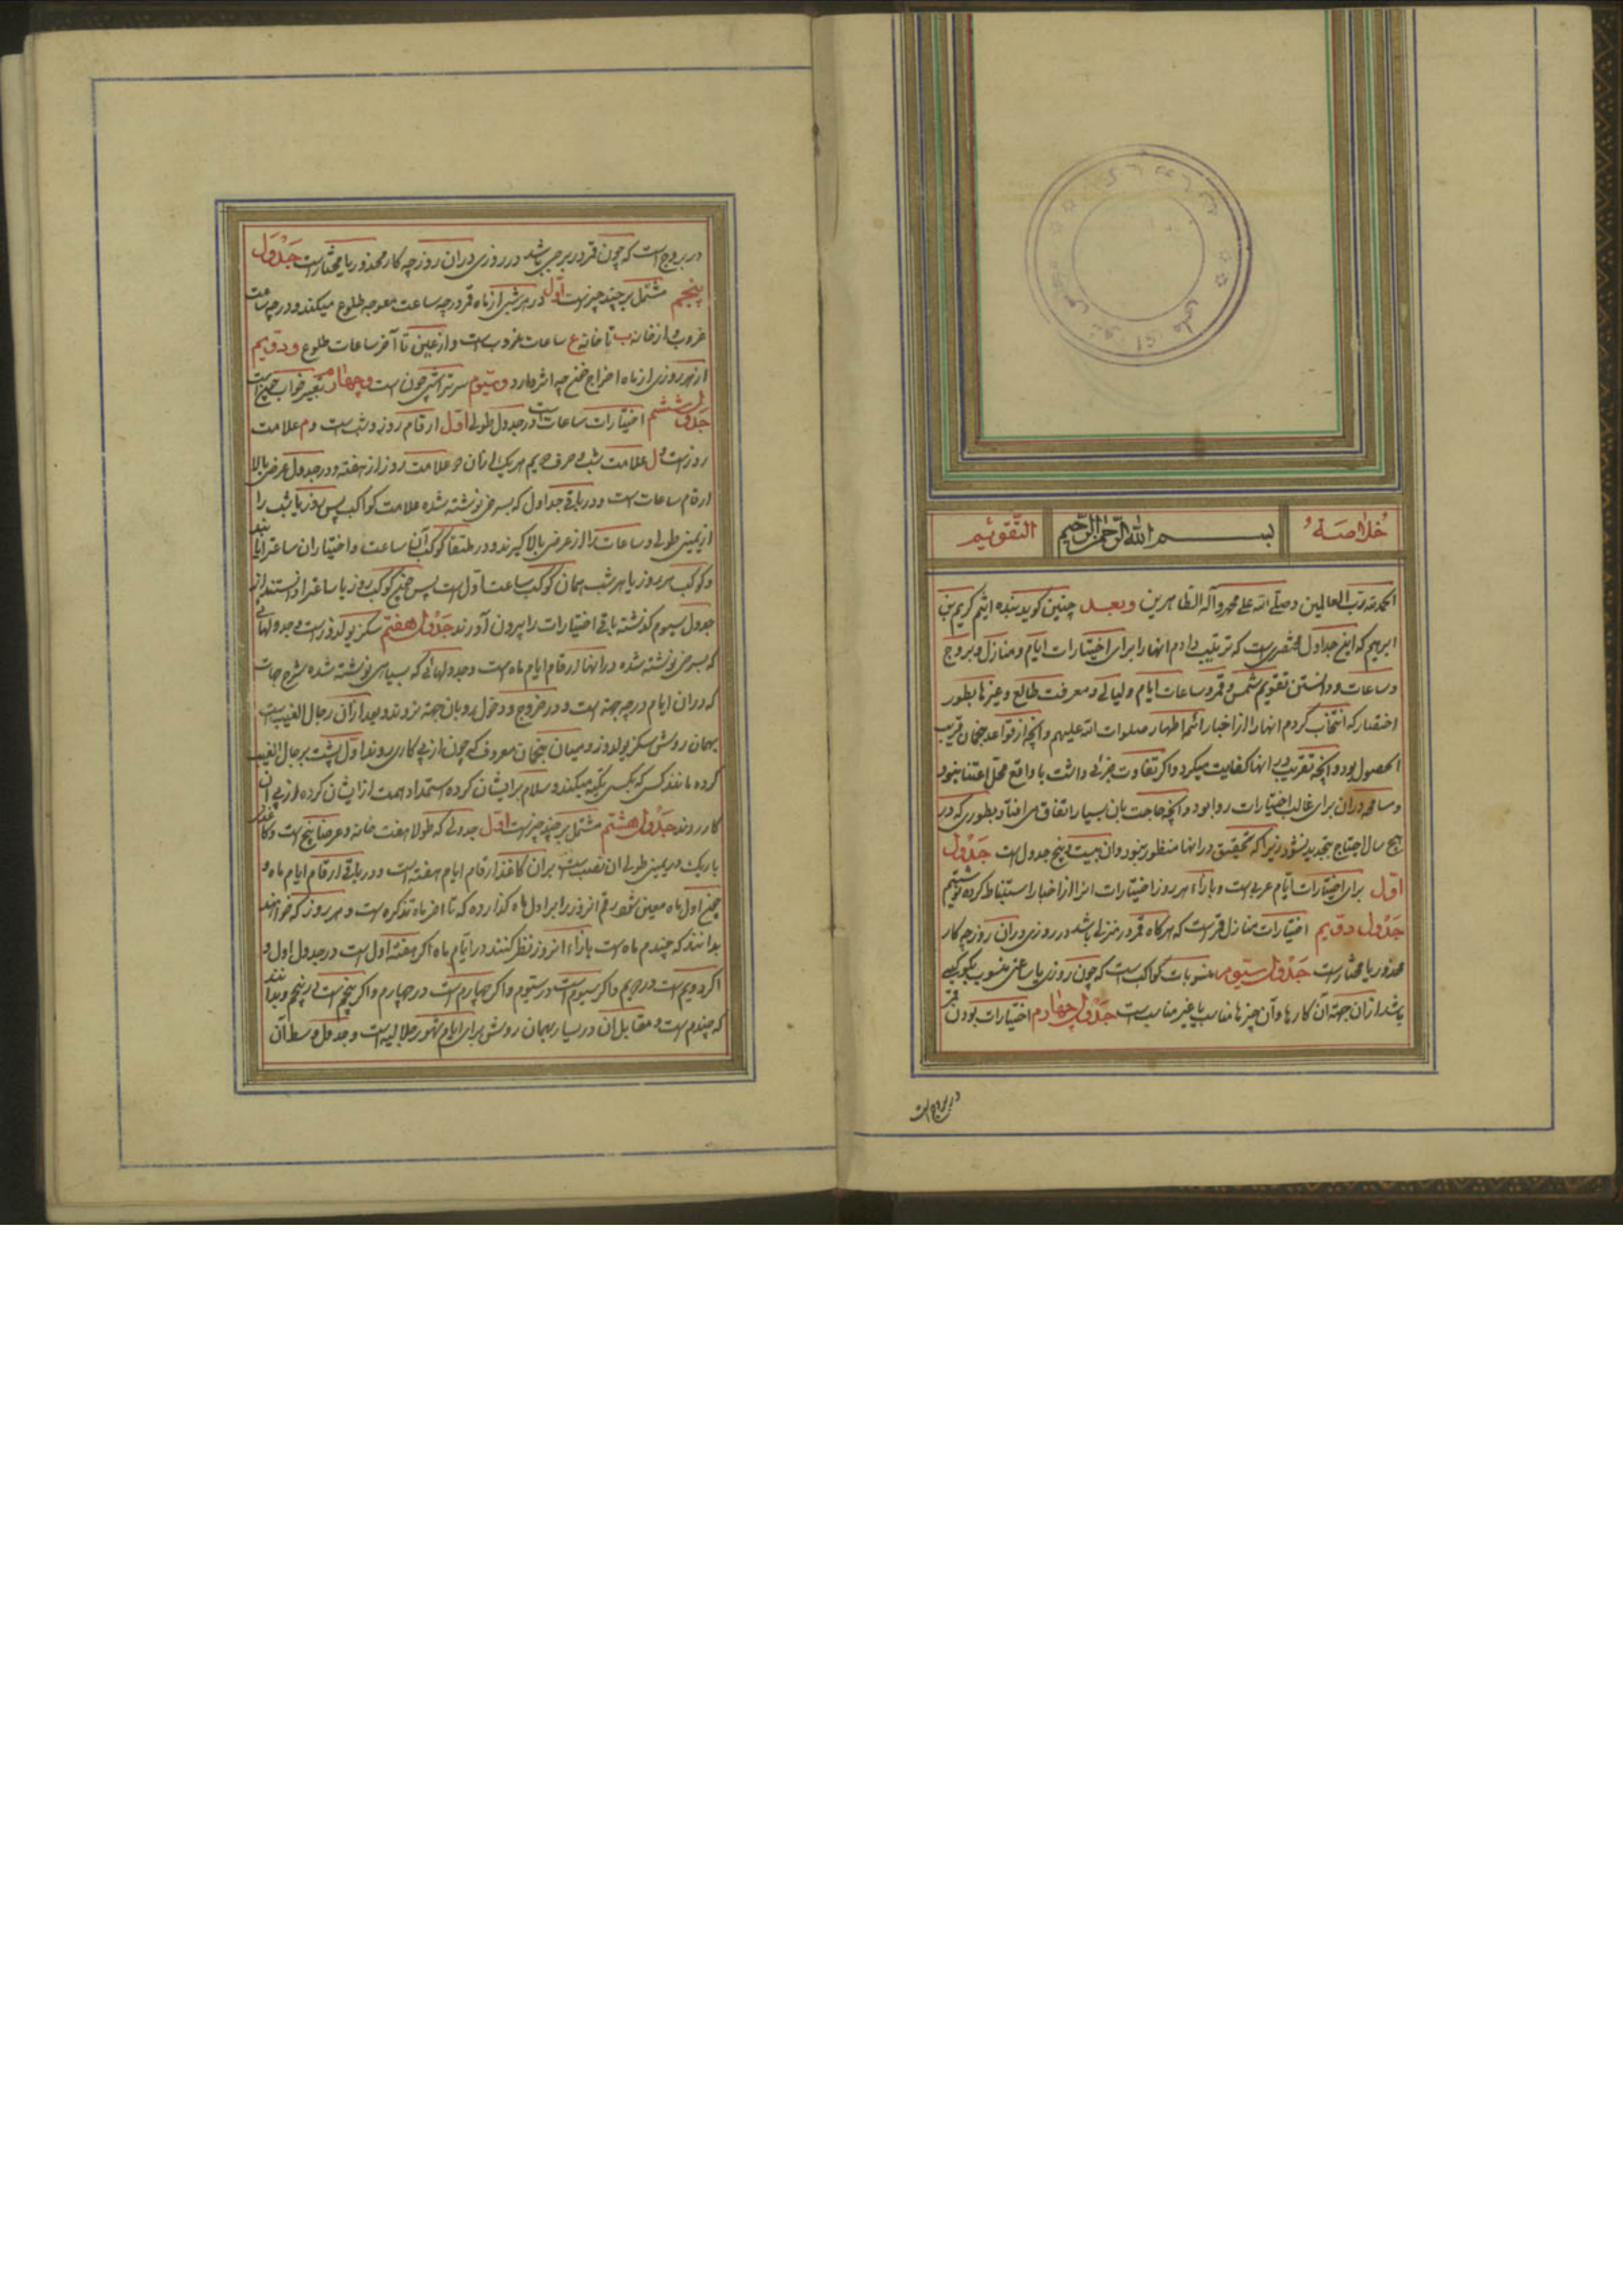 خلاصة بسم الله الرحمن الرحیم التقویم
الحمد لله رب العالمین و صلی الله علی محمد و آله الطاهرین و بعد چنین گوید بنده اثیم کریم بن
ابرهیم که این جداول مختصری است که ترتیب دادم انها را برای اختیارات ایام و منازل و بروج
و ساعات و دانستن تقویم شمس و قمر و ساعات ایام و لیالی و معرفت طالع و غیرها بطور
اختصار که انتخاب کردم انها را از اخبار ائمه اطهار صلوات الله علیهم و انچه از قواعد منجمان قریب
الحصول بود و انچه تقریب در انها کفایت میکرد و اگر تفاوت جزئی داشت با واقع محل اعتنا نبود
و مسامحه در ان برای غالب اختیارات روا بود و انچه حاجت بان بسیار اتفاق می افتاد بطوری که در
هیچ سال احتیاج بتجدید نشود زیرا که تحقیق در انها منظور نبود و ان بیست و پنج جدول است جدول
اول برای اختیارات ایام عربی است و بازاء هر روز اختیارات انرا از اخبار استنباط کرده نوشتیم
جدول دویم اختیارات منازل قمر است که هرکاه قمر در منزلی باشد در روزی در ان روز چه کار
محذور یا مختار است جدول سیوم منسوبات کواکب است که چون روزی یا ساعتی منسوب بکوکبی
باشد از ان جهة آن کارها و آن چیزها مناسب یا غیر مناسب است جدول چهارم اختیارات بودن قمر
در بروج است
در بروج است که چون قمر در برجی باشد در روزی در ان روز چه کار محذور یا مختار است جدول
پنجم مشتمل بر چند چیز است اول در هر شبی از ماه قمر در چه ساعت معوجه طلوع میکند و در چه ساعت
غروب و از خانه ب تا خانه ع ساعات غروب است و از عین تا آخر ساعات طلوع و دویم
از هر روزی از ماه اخراج خون چه اثر دارد و سیوم سرتراشی چون است و چهارم تعبیر خواب چیست
جدول ششم اختیارات ساعات است در جدول طولی اول ارقام روز و شب است و م علامت
روز است و ل علامت شب و حرف دویم هر یک از ان دو علامت روز از هفته و در جدول عرضی بالا
ارقام ساعات است و در باقی جداول که بسرخی نوشته شده علامت کواکب پس روز یا شب را
از یمین طولی و ساعات را از عرض بالا گیرند و در ملتقا کوکب آن ساعت و اختیار ان ساعت را یابند
و کوکب هر روز یا هر شب همان کوکب ساعت اول است پس چون کوکب روز یا ساعت را دانستند از
جدول سیوم گذشته باقی اختیارات را بیرون آورند جدول هفتم سکز یولدوز است و جدولهائی
که بسرخی نوشته شده در انها ارقام ایام ماه است و جدولهائی که بسیاهی نوشته شده شرح جهات
که در ان ایام در چه جهة است و در خروج و دخول رو بان جهة نروند و بعد از آن رجال الغیب است
بهمان روش سکز یولدوز و میان منجمان معروف که چون از پی کاری روند اول پشت برجال الغیب
کرده مانند کسی که بکسی تکیه میکند و سلام بر ایشان کرده استمداد همت از ایشان کرده از پی ان
کار روند جدول هشتم مشتمل بر چند چیز است اول جدولی که طولا هفت خانه و عرضا پنج است و کاغذی
باریک در یمین طولی ان نصب است بران کاغذ ارقام ایام هفته است و در باقی ارقام ایام ماه و
چون اول ماه معین شود رقم انروز را برابر اول ماه گذارده که تا اخر ماه تذکره است و هر روز که خواهند
بدانند که چندم ماه است بازاء انروز نظر کنند در ایام ماه اگر هفته اول است در جدول اول و
اگر دویم است در دویم و اگر سیوم است در سیوم و اگر چهارم است در چهارم و اگر پنجم است در پنجم و بدانند
که چندم است و مقابل ان در یسار بهمان روش برای ایام شهور جلالیه است و جدول وسط آن